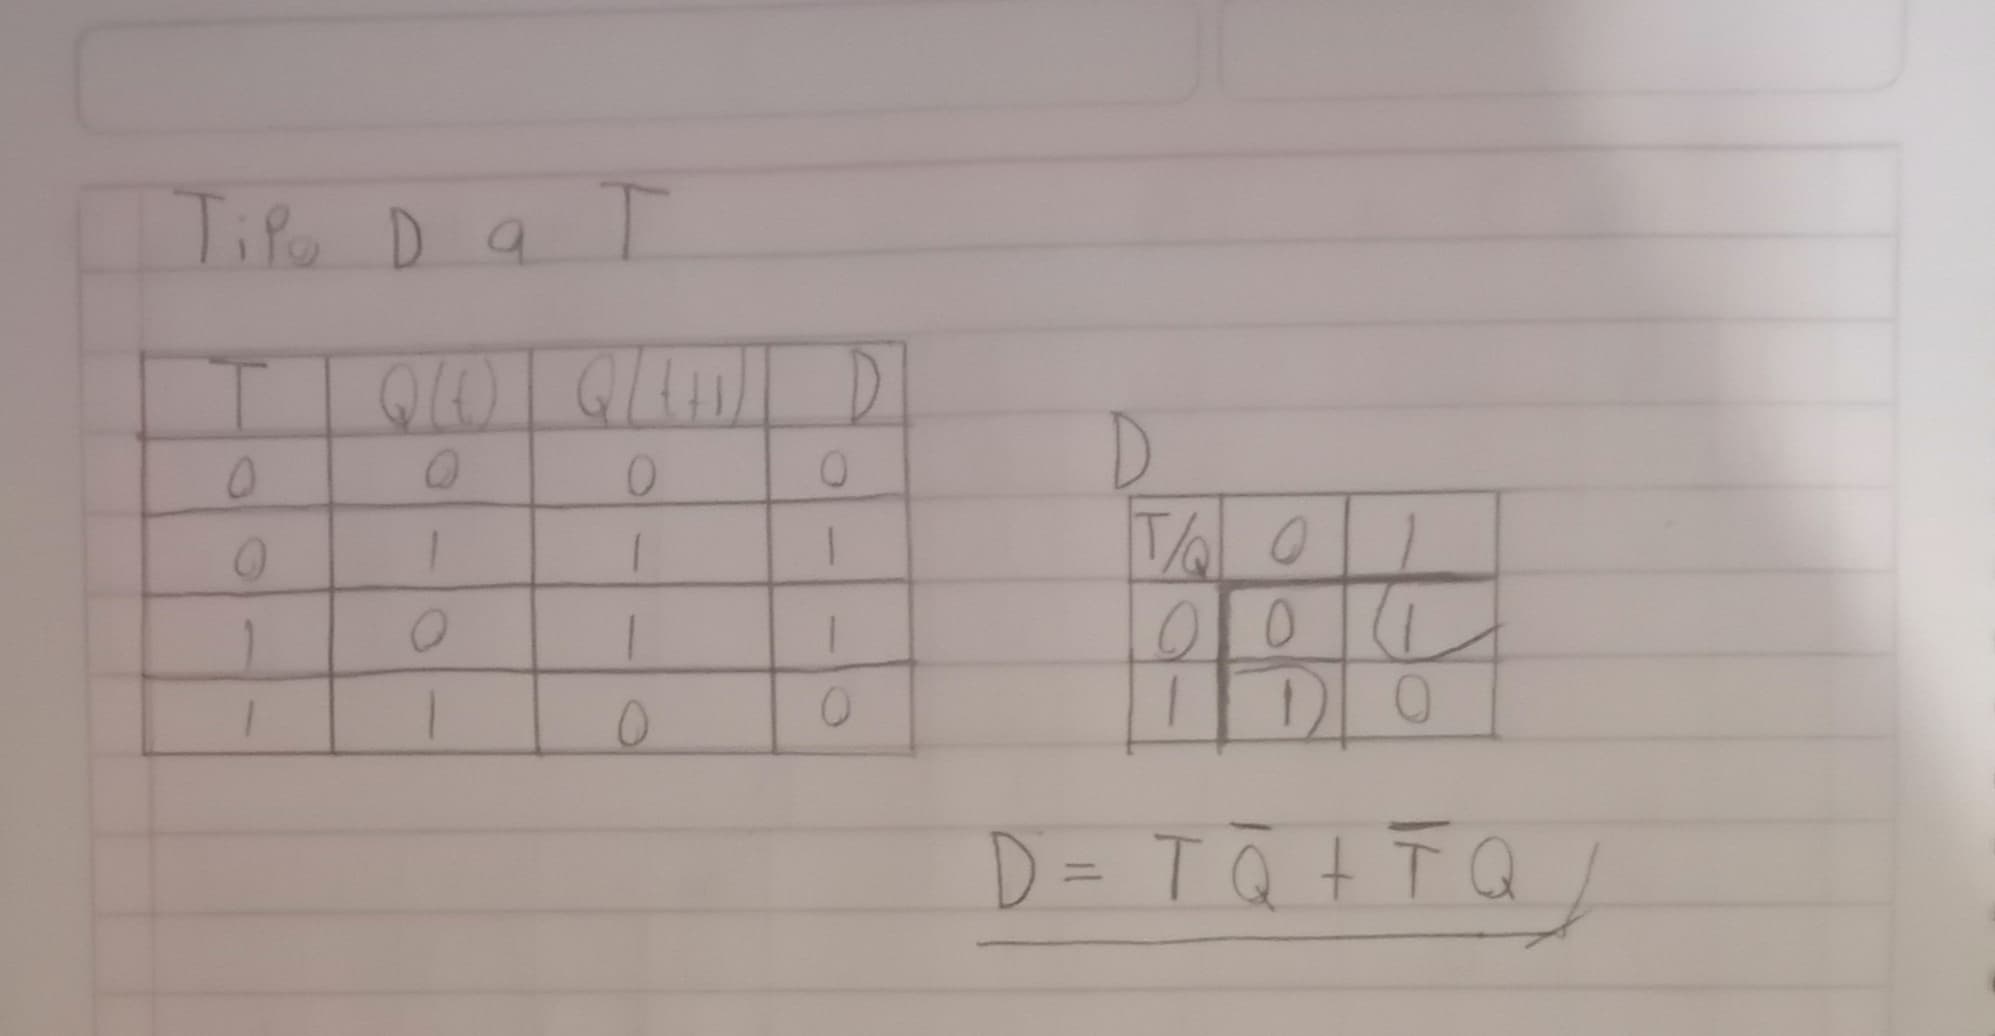 Tipo D a T
T Q(t) Q(t+1) D
0 0 0 0
0 1 1 1
1 0 1 1
1 1 0 0
D
T/Q 0 1
0 0 1
1 1 0
D = TQ̅ + T̅Q